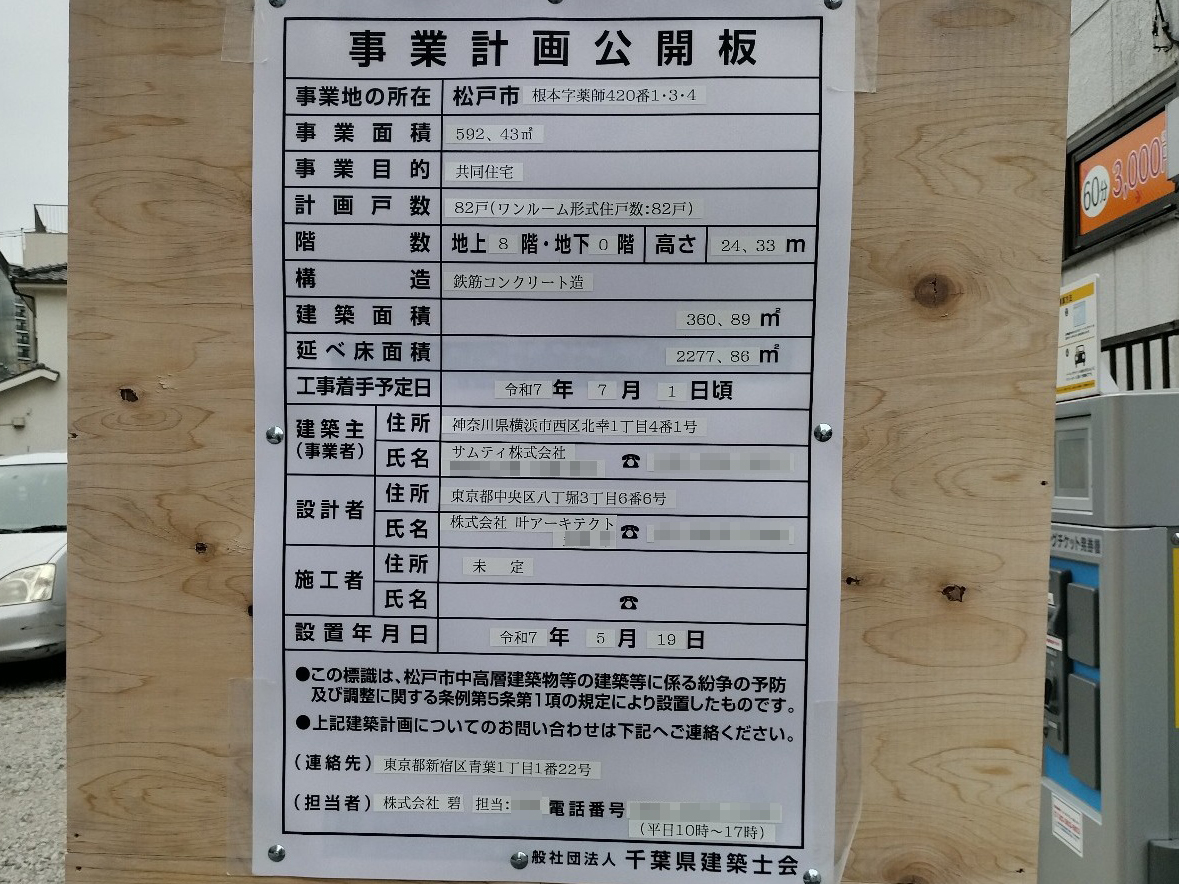 事業計画公開板
事業地の所在 松戸市 根本字薬師420番1・3・4
事業面積 592、43㎡
事業目的 共同住宅
計画戸数 82戸(ワンルーム形式住戸数:82戸)
階数 地上 8 階・地下 0 階 高さ 24、33 m
構造 鉄筋コンクリート造
建築面積 360、89 ㎡
延べ床面積 2277、86 ㎡
工事着手予定日 令和7 年 7 月 1 日頃
建築主(事業者) 住所 神奈川県横浜市西区北幸1丁目4番1号
氏名 サムティ株式会社 ☎
設計者 住所 東京都中央区八丁堀3丁目6番6号
氏名 株式会社 叶アーキテクト ☎
施工者 住所 未 定
氏名 ☎
設置年月日 令和7 年 5 月 19 日
●この標識は、松戸市中高層建築物等の建築等に係る紛争の予防
及び調整に関する条例第5条第1項の規定により設置したものです。
●上記建築計画についてのお問い合わせは下記へご連絡ください。
(連絡先) 東京都新宿区青葉1丁目1番22号
(担当者) 株式会社 碧 担当: 電話番号
(平日10時〜17時)
一般社団法人 千葉県建築士会
60分 3,000
チケット発券機